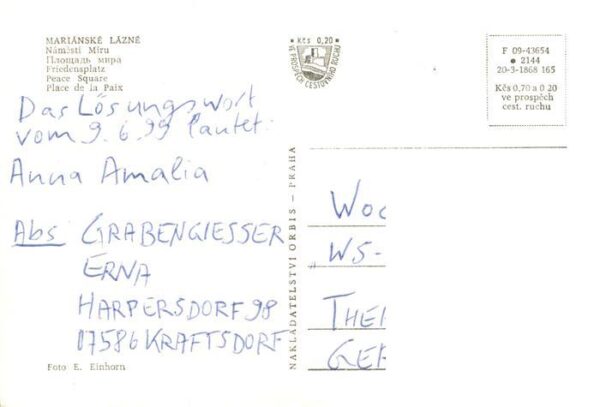 MARIÁNSKÉ LÁZNĚ
Náměstí Míru
Площадь мира
Friedensplatz
Peace Square
Place de la Paix
Das Lösungswort
vom 9.6.99 lautet:
Anna Amalia
Abs GRABENGIESSER
ERNA
HARPERSDORF 98
07586 KRAFTSDORF
Foto E. Einhorn
Kčs 0,20
VE PROSPĚCH CESTOVNÍHO RUCHU
NAKLADATELSTVÍ ORBIS - PRAHA
F 09-43654
• 2144
20-3-1868 165
Kčs 0,70 a 0 20
ve prospěch
cest. ruchu
WOC
WS-
THEI
GER